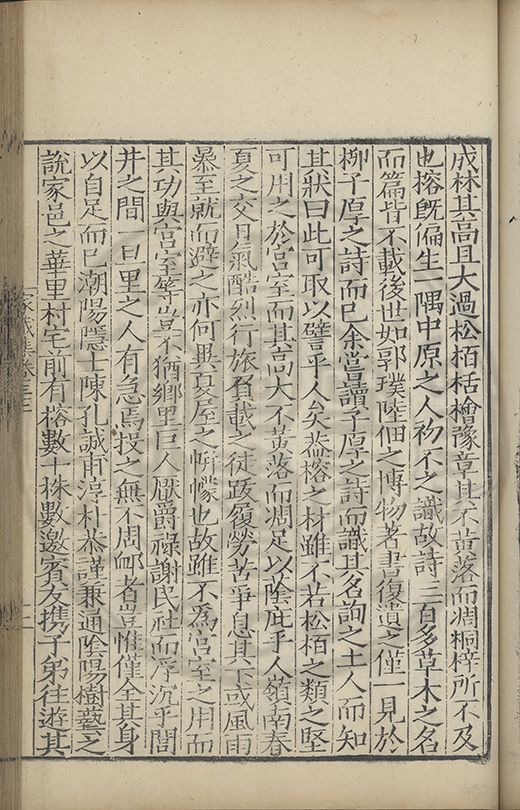 成林其高且大過松栢栝檜豫章且不黃落而凋桐梓所不及
也榕旣偏生一隅中原之人初不之識故詩三百多草木之名
而篇皆不載後世如郭璞陸佃之博物著書復遺之僅一見於
柳子厚之詩而已余嘗讀子厚之詩而識其名詢之土人而知
其狀曰此可取以譬乎人矣葢榕之材雖不若松栢之類之堅
可用之於宮室而其高大不黃落而凋足以蔭庇乎人嶺南春
夏之交日氣酷烈行旅負載之徒跋履勞苦爭息其下或風雨
㬥至就而避之亦何異夏屋之帡幪也故雖不爲宮室之用而
其功與宮室等豈不猶鄉里巨人厭爵祿謝民社而浮沉乎閭
井之間一旦里之人有急焉投之無不周卹者豈惟僅全其身
以自足而已潮陽隱士陳孔誠甫淳朴恭謹兼通陰陽樹藝之
說家邑之華里村宅前有榕數十株數邀賓友携子弟往遊其